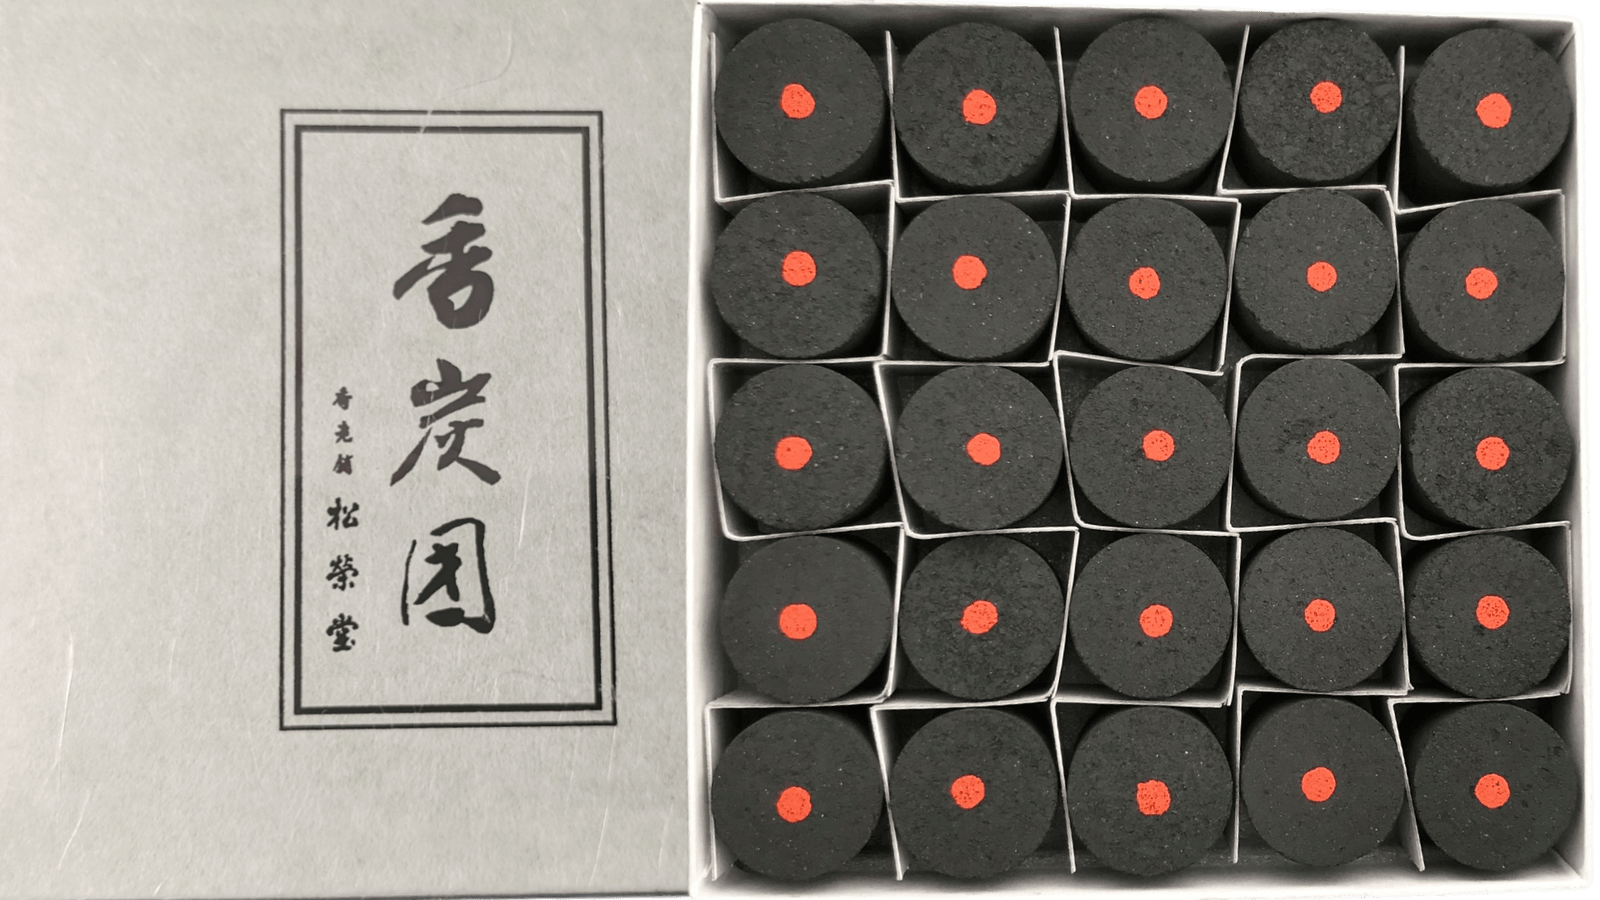 香炭団
香老舗 松榮堂